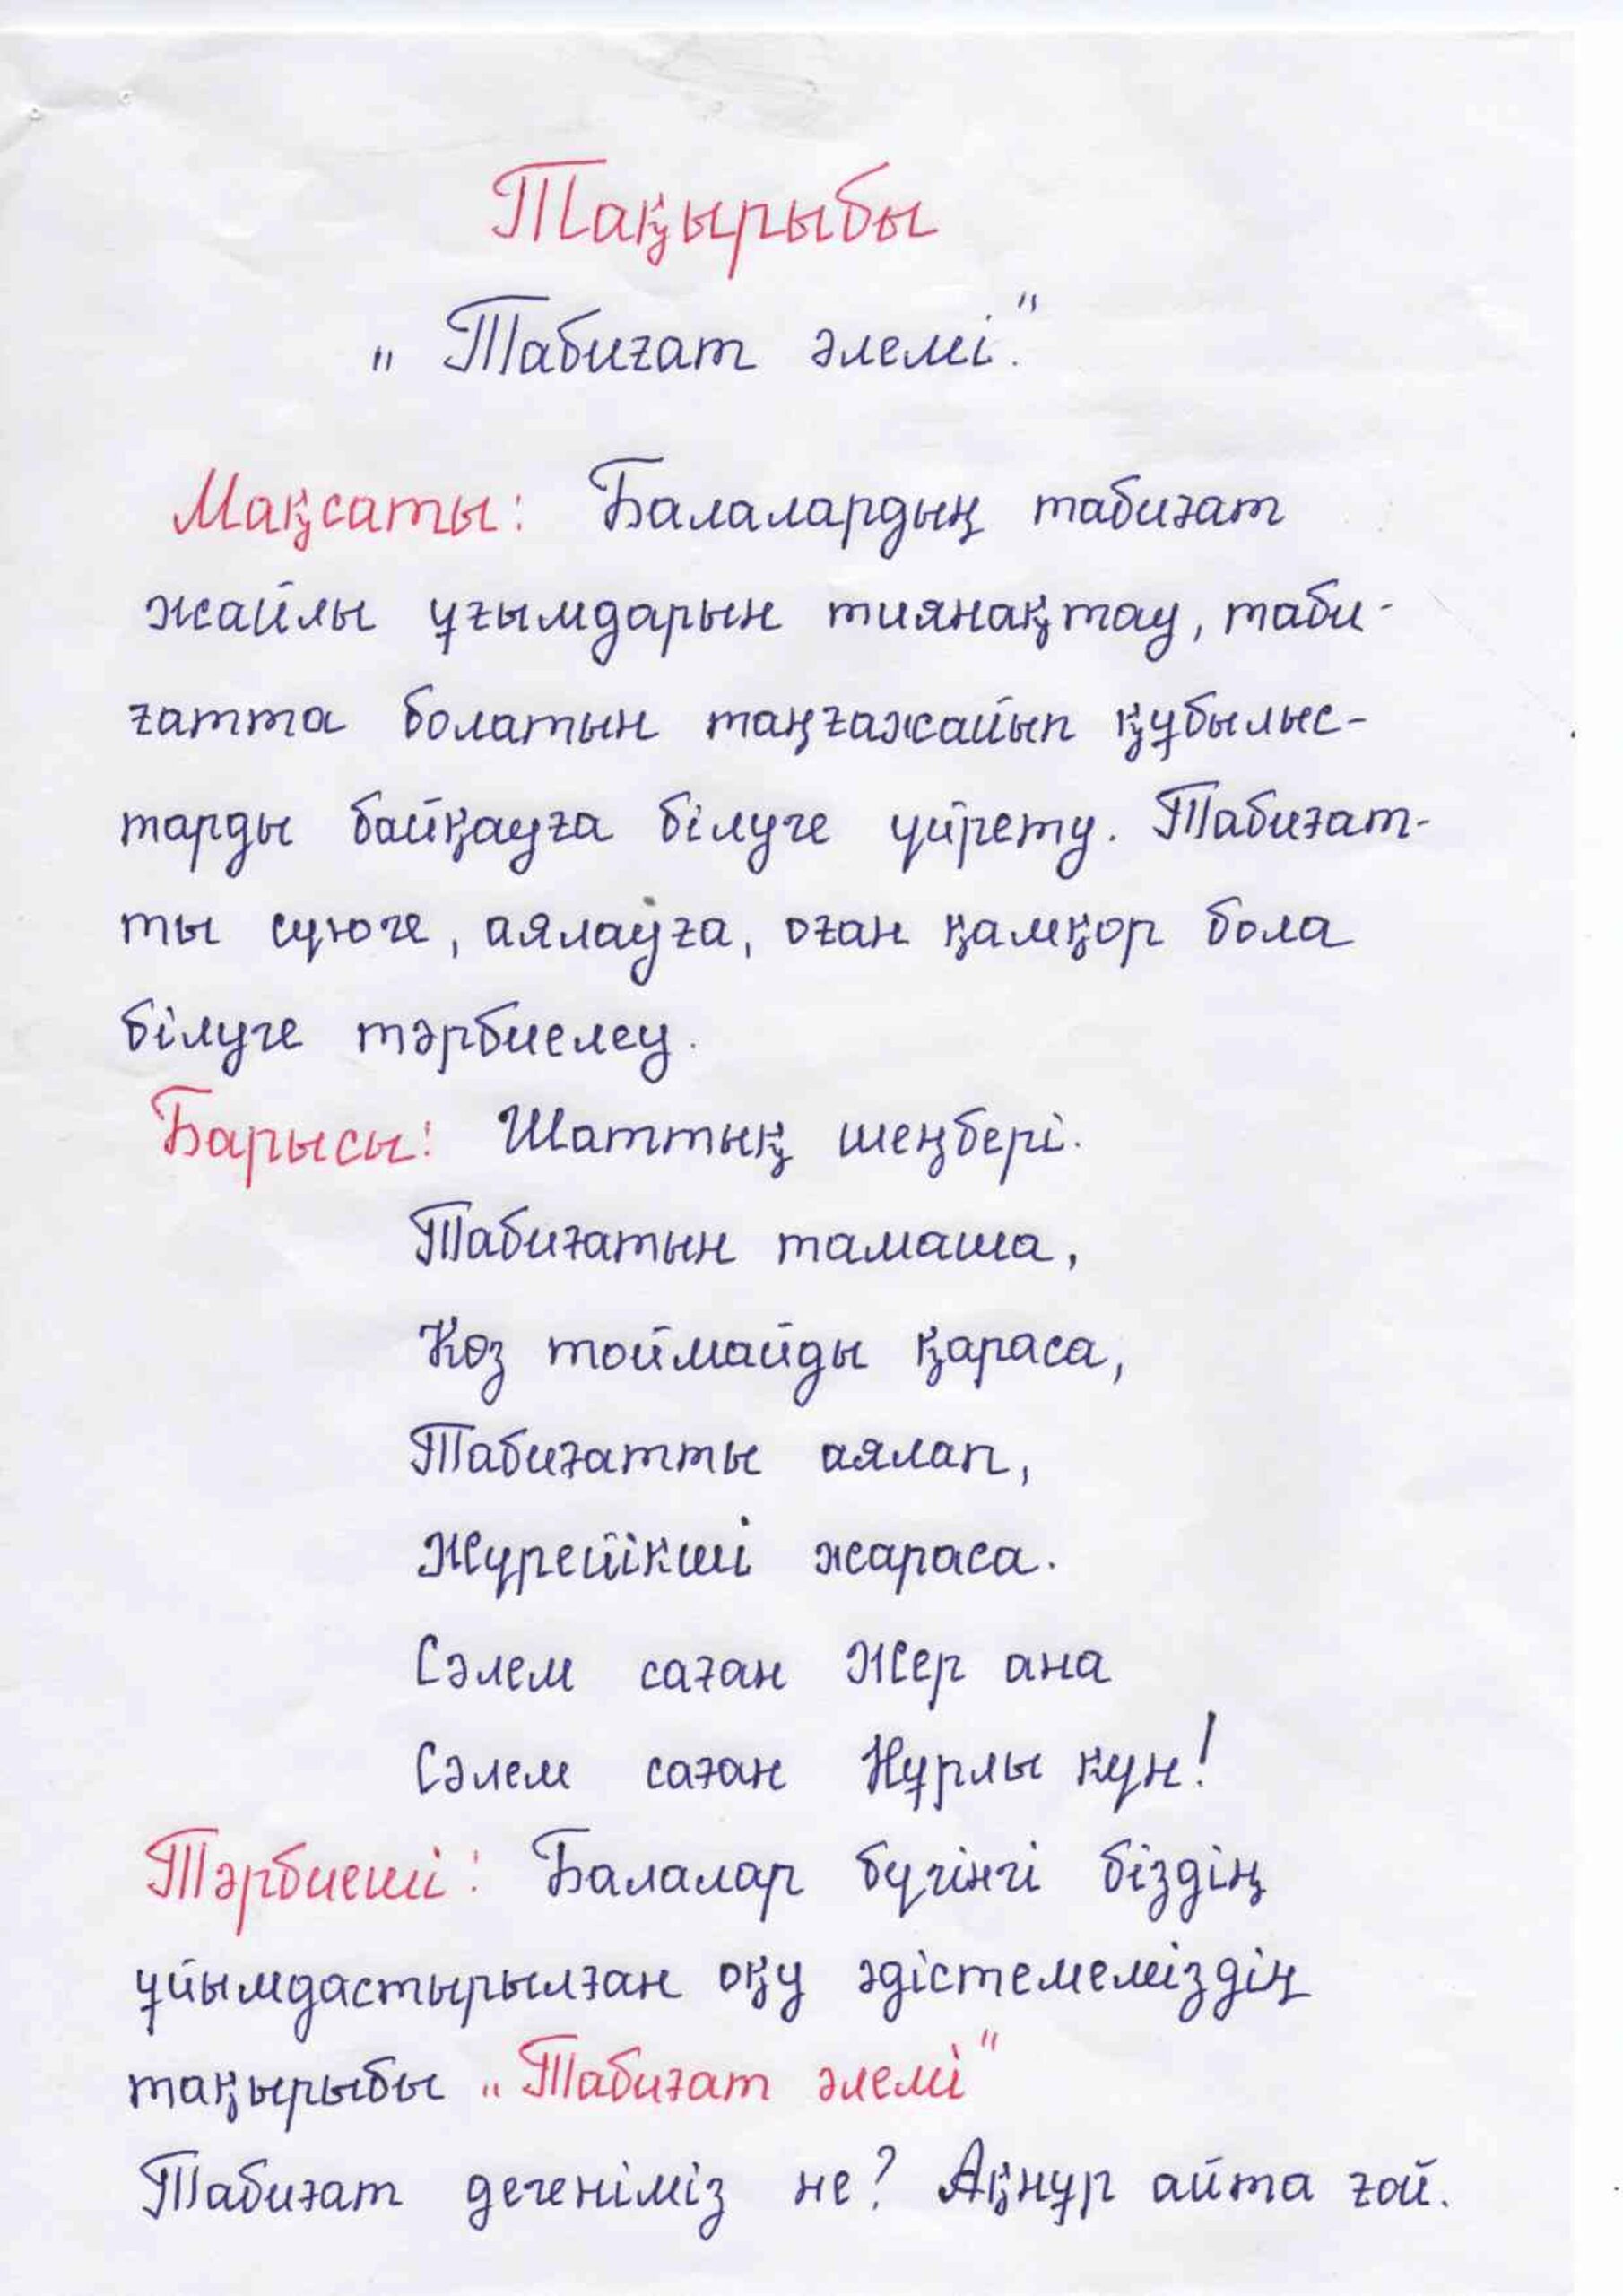 Тақырыбы
„Табиғат әлемі."
Мақсаты: Балалардың табиғат
жайлы ұғымдарын тиянақтау, таби-
ғатта болатын таңғажайып құбылыс-
тарды байқауға білуге үйрету. Табиғат-
ты сүюге, аялауға, оған қамқор бола
білуге тәрбиелеу.
Барысы: Шаттық шеңбері.
Табиғатын тамаша,
Көз тоймайды қараса,
Табиғатты аялап,
Жүрейікші жараса.
Сәлем саған Жер ана
Сәлем саған Нұрлы күн!
Тәрбиеші: Балалар бүгінгі біздің
ұйымдастырылған оқу әдістемеміздің
тақырыбы „Табиғат әлемі"
Табиғат дегеніміз не? Ақнұр айта ғой.